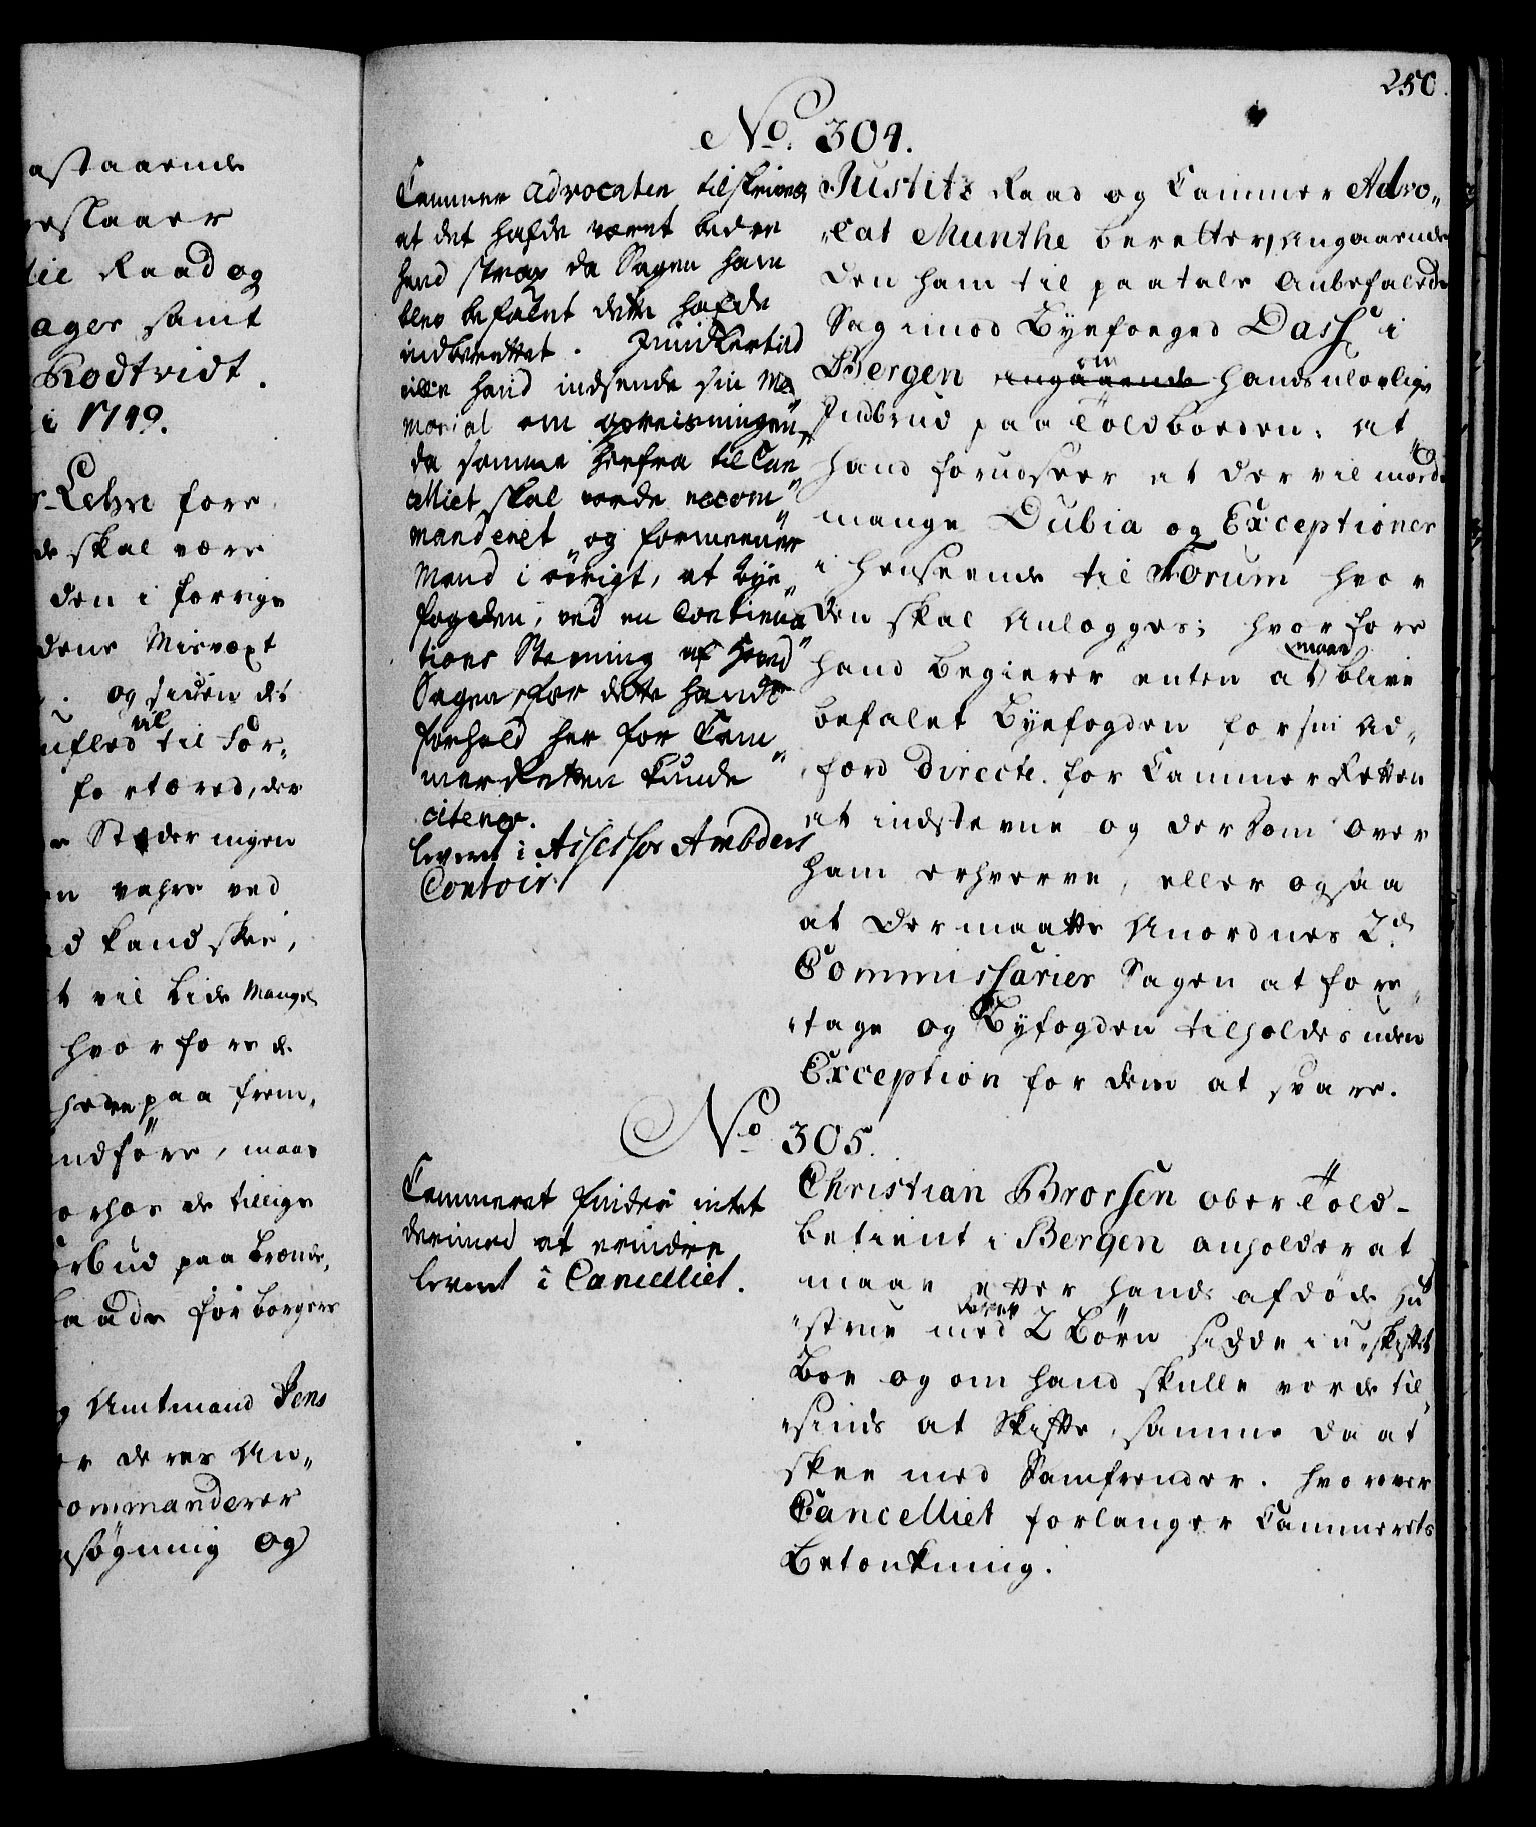 astaarende
eeslaaer
tie Raad og
ages samt
Rodtvidt.
i 1749.
Lehn fore
de skal være
den i forrige
dens Misvæxt
og siden det
vil
ufled til For„
fortæred, der
Stæder ingen
en vahre ved
ed kand skee,
t vil lide Mangel
hvorfore d.
heden paa frem„
indføre, maae
orhos de tillige
orbud paa Brænde„
aade for Borgere
g Amtmand Jens
er deres An„
ommanderer
søgning og
250.
No. 304.
Cammer Advocaten tilskrives
at det hafde været bedre
hand strax da Sagen ham
blev befalet dette hafde
indberettet. Imidlertid
ville hand indsende sin Me„
morial om opreisningen„
da samme herfra til Can„
celliet skal vorde recom„
manderet og formeener
Mand i øvrigt, at Bye„
fogden, ved en Continua„
tions Stevning af
Sagen, for dette hands
forhold her for Cam„
mer Retten kunde
citeres.
leveret i Assessor Ambders
Contoir.
Justitz Raad og Cammer Advo„
„cat Munthe beretter, Angaaende
den ham til paatale Anbefalede
Sag imod Byefoeged Dass i
om
Bergen angaaende hands ulovlige
Indbrud paa Toldboeden; at
hand forudseer at der vil møde
mange Dubia og Exceptioner
i henseende til Forum hvor
den skal Anlægges; hvorfore
maae
hand begierer enten at blive
befalet Byefogden for sin Ad„
„færd directe for Cammer Retten
at indstevne og der Dom over
ham erhverve, eller ogsaa
at der maatte Anordnes 2de
Commissarier Sagen at fore„
„tage og Byfogden tilholdes uden
Exception for dem at svare.
No 305.
Cammeret finder intet
derimod at erindre
leveret i Cancelliet.
Christian Brorsen ober Told-
betient i Bergen anholder at
maae efter hands afdøde Hu„
deres
„strue med 2 Børn sidde i u-skiftet
Boe og om hand skulle vorde til„
„sinds at Skifte, samme da at
skee med Samfrender. hvorover
Cancelliet forlanger Cammerets
Betænkning.